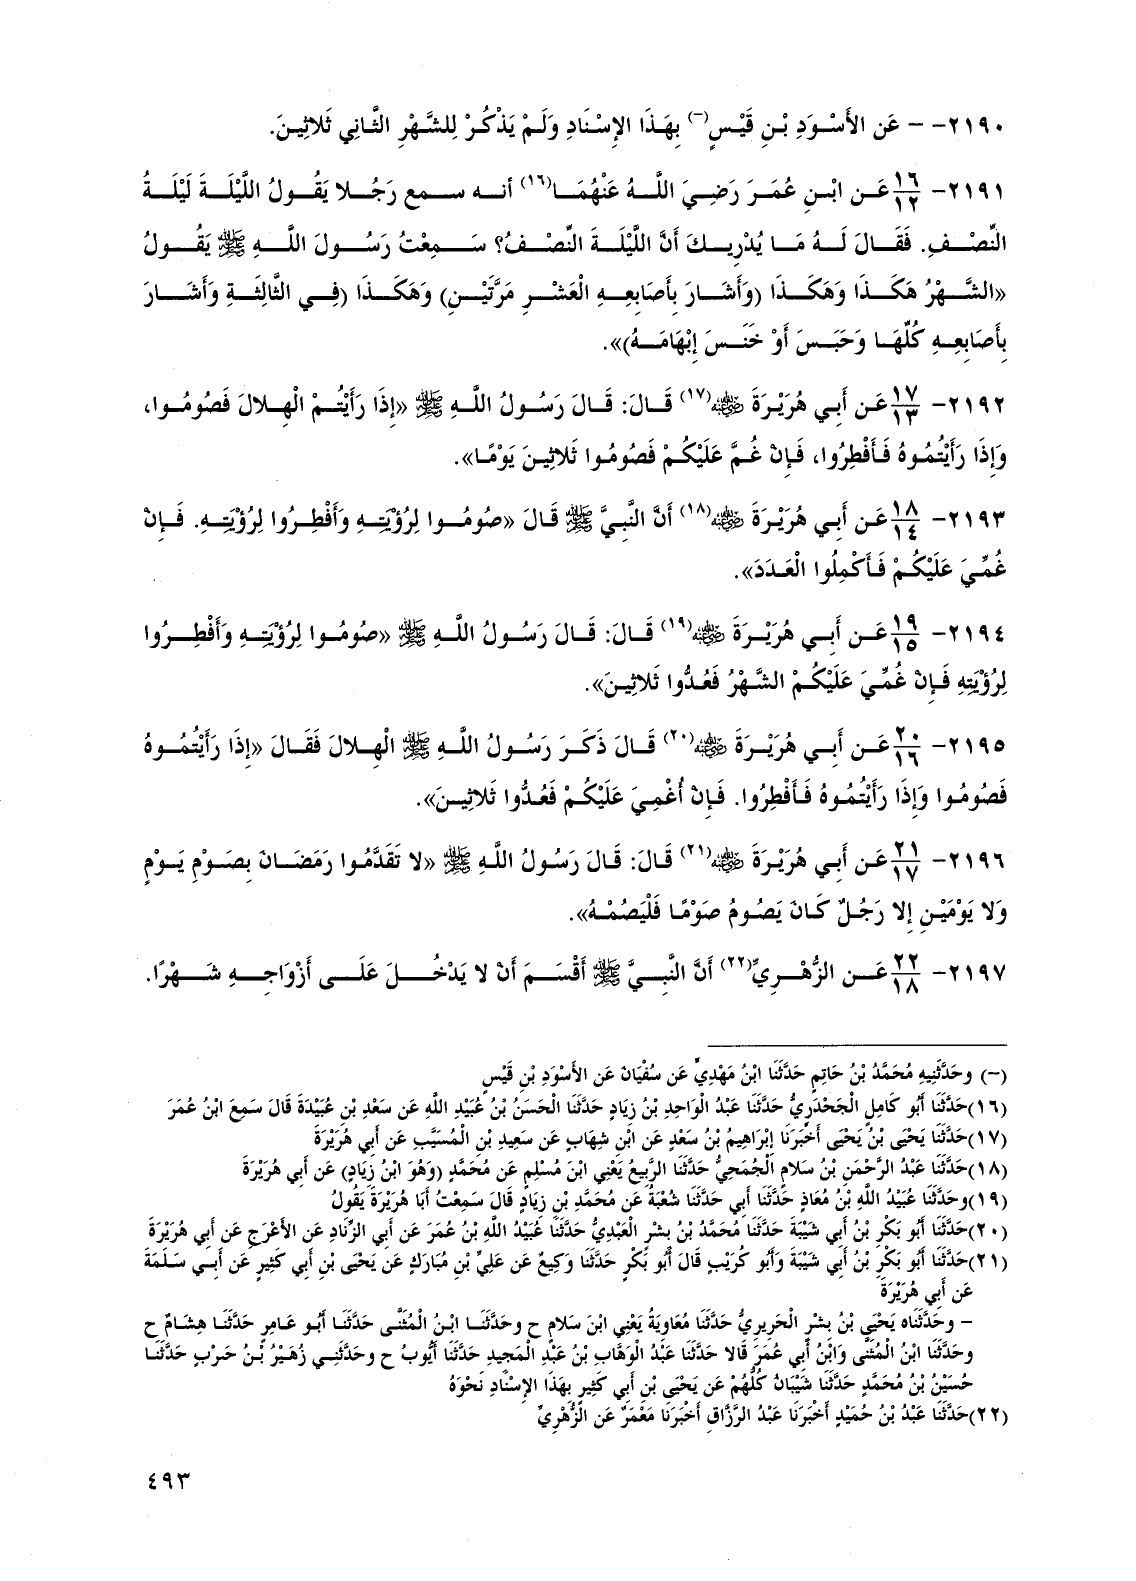 ٢١٩٠- – عَنِ الأَسْوَدِ بْنِ قَيْسٍ(–) بِهَذَا الإِسْنَادِ وَلَمْ يَذْكُرْ لِلشَّهْرِ الثَّانِي ثَلاثِينَ.
٢١٩١- ١٦/١٢ عَنِ ابْنِ عُمَرَ رَضِيَ اللَّهُ عَنْهُمَا(١٦) أنه سمع رَجُلا يَقُولُ اللَّيْلَةَ لَيْلَةُ
النِّصْفِ. فَقَالَ لَهُ مَا يُدْرِيكَ أَنَّ اللَّيْلَةَ النِّصْفُ؟ سَمِعْتُ رَسُولَ اللَّهِ ﷺ يَقُولُ
«الشَّهْرُ هَكَذَا وَهَكَذَا (وَأَشَارَ بِأَصَابِعِهِ الْعَشْرِ مَرَّتَيْنِ) وَهَكَذَا (فِي الثَّالِثَةِ وَأَشَارَ
بِأَصَابِعِهِ كُلِّهَا وَحَبَسَ أَوْ خَنَسَ إِبْهَامَهُ)».
٢١٩٢- ١٧/١٣ عَن أَبِي هُرَيْرَةَ ﵁(١٧) قَالَ: قَالَ رَسُولُ اللَّهِ ﷺ «إِذَا رَأَيْتُمْ الْهِلالَ فَصُومُوا،
وَإِذَا رَأَيْتُمُوهُ فَأَفْطِرُوا، فَإِنْ غُمَّ عَلَيْكُمْ فَصُومُوا ثَلاثِينَ يَوْمًا».
٢١٩٣- ١٨/١٤ عَن أَبِي هُرَيْرَةَ ﵁(١٨) أَنَّ النَّبِيَّ ﷺ قَالَ «صُومُوا لِرُؤْيَتِهِ وَأَفْطِرُوا لِرُؤْيَتِهِ. فَإِنْ
غُمِّيَ عَلَيْكُمْ فَأَكْمِلُوا الْعَدَدَ».
٢١٩٤- ١٩/١٥ عَن أَبِي هُرَيْرَةَ ﵁(١٩) قَالَ: قَالَ رَسُولُ اللَّهِ ﷺ «صُومُوا لِرُؤْيَتِهِ وَأَفْطِرُوا
لِرُؤْيَتِهِ فَإِنْ غُمِّيَ عَلَيْكُمْ الشَّهْرُ فَعُدُّوا ثَلاثِينَ».
٢١٩٥- ٢٠/١٦ عَن أَبِي هُرَيْرَةَ ﵁(٢٠) قَالَ ذَكَرَ رَسُولُ اللَّهِ ﷺ الْهِلالَ فَقَالَ «إِذَا رَأَيْتُمُوهُ
فَصُومُوا وَإِذَا رَأَيْتُمُوهُ فَأَفْطِرُوا. فَإِنْ أُغْمِيَ عَلَيْكُمْ فَعُدُّوا ثَلاثِينَ».
٢١٩٦- ٢١/١٧ عَن أَبِي هُرَيْرَةَ ﵁(٢١) قَالَ: قَالَ رَسُولُ اللَّهِ ﷺ «لا تَقَدَّمُوا رَمَضَانَ بِصَوْمِ يَوْمٍ
وَلا يَوْمَيْنِ إِلا رَجُلٌ كَانَ يَصُومُ صَوْمًا فَلْيَصُمْهُ».
٢١٩٧- ٢٢/١٨ عَنِ الزُّهْرِيِّ(٢٢) أَنَّ النَّبِيَّ ﷺ أَقْسَمَ أَنْ لا يَدْخُلَ عَلَى أَزْوَاجِهِ شَهْرًا.
(–) وحَدَّثَنِيهِ مُحَمَّدُ بْنُ حَاتِمٍ حَدَّثَنَا ابْنُ مَهْدِيٍّ عَن سُفْيَانَ عَنِ الأَسْوَدِ بْنِ قَيْسٍ
(١٦)حَدَّثَنَا أَبُو كَامِلٍ الْجَحْدَرِيُّ حَدَّثَنَا عَبْدُ الْوَاحِدِ بْنُ زِيَادٍ حَدَّثَنَا الْحَسَنُ بْنُ عُبَيْدِ اللَّهِ عَن سَعْدِ بْنِ عُبَيْدَةَ قَالَ سَمِعَ ابْنُ عُمَرَ
(١٧)حَدَّثَنَا يَحْيَى بْنُ يَحْيَى أَخْبَرَنَا إِبْرَاهِيمُ بْنُ سَعْدٍ عَنِ ابْنِ شِهَابٍ عَن سَعِيدِ بْنِ الْمُسَيَّبِ عَن أَبِي هُرَيْرَةَ
(١٨)حَدَّثَنَا عَبْدُ الرَّحْمَنِ بْنُ سَلامٍ الْجُمَحِيُّ حَدَّثَنَا الرَّبِيعُ يَعْنِي ابْنَ مُسْلِمٍ عَن مُحَمَّدٍ (وَهُوَ ابْنُ زِيَادٍ) عَن أَبِي هُرَيْرَةَ
(١٩)وحَدَّثَنَا عُبَيْدُ اللَّهِ بْنُ مُعَاذٍ حَدَّثَنَا أَبِي حَدَّثَنَا شُعْبَةُ عَن مُحَمَّدِ بْنِ زِيَادٍ قَالَ سَمِعْتُ أَبَا هُرَيْرَةَ يَقُولُ
(٢٠)حَدَّثَنَا أَبُو بَكْرِ بْنُ أَبِي شَيْبَةَ حَدَّثَنَا مُحَمَّدُ بْنُ بِشْرٍ الْعَبْدِيُّ حَدَّثَنَا عُبَيْدُ اللَّهِ بْنُ عُمَرَ عَن أَبِي الزِّنَادِ عَنِ الأَعْرَجِ عَن أَبِي هُرَيْرَةَ
(٢١)حَدَّثَنَا أَبُو بَكْرِ بْنُ أَبِي شَيْبَةَ وَأَبُو كُرَيْبٍ قَالَ أَبُو بَكْرٍ حَدَّثَنَا وَكِيعٌ عَن عَلِيِّ بْنِ مُبَارَكٍ عَن يَحْيَى بْنِ أَبِي كَثِيرٍ عَن أَبِي سَلَمَةَ
عَن أَبِي هُرَيْرَةَ
– وحَدَّثَنَاه يَحْيَى بْنُ بِشْرٍ الْحَرِيرِيُّ حَدَّثَنَا مُعَاوِيَةُ يَعْنِي ابْنَ سَلامٍ ح وحَدَّثَنَا ابْنُ الْمُثَنَّى حَدَّثَنَا أَبُو عَامِرٍ حَدَّثَنَا هِشَامٌ ح
وحَدَّثَنَا ابْنُ الْمُثَنَّى وَابْنُ أَبِي عُمَرَ قَالا حَدَّثَنَا عَبْدُ الْوَهَّابِ بْنُ عَبْدِ الْمَجِيدِ حَدَّثَنَا أَيُّوبُ ح وحَدَّثَنِي زُهَيْرُ بْنُ حَرْبٍ حَدَّثَنَا
حُسَيْنُ بْنُ مُحَمَّدٍ حَدَّثَنَا شَيْبَانُ كُلُّهُمْ عَن يَحْيَى بْنِ أَبِي كَثِيرٍ بِهَذَا الإِسْنَادِ نَحْوَهُ
(٢٢)حَدَّثَنَا عَبْدُ بْنُ حُمَيْدٍ أَخْبَرَنَا عَبْدُ الرَّزَّاقِ أَخْبَرَنَا مَعْمَرٌ عَنِ الزُّهْرِيِّ
٤٩٣